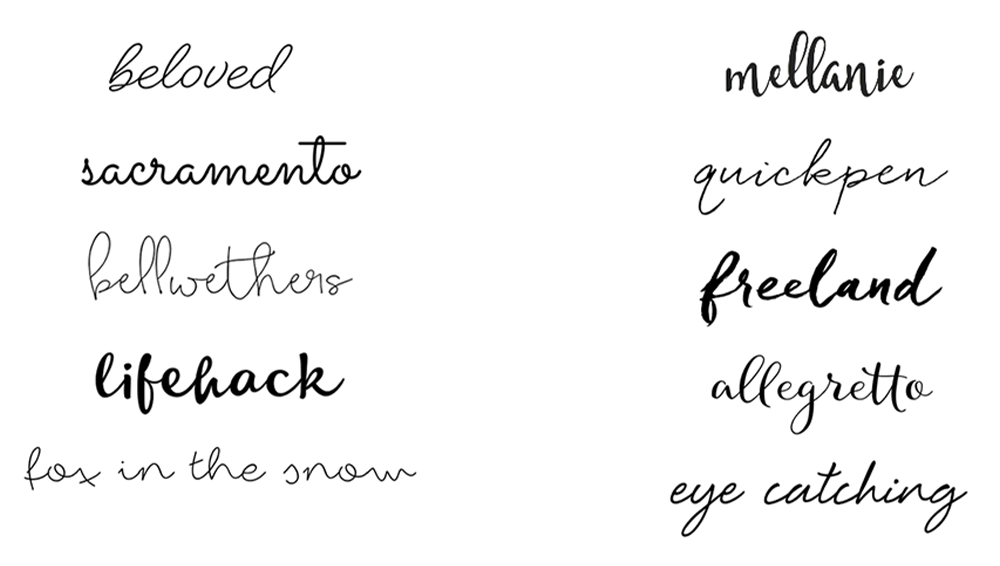 beloved
sacramento
bellwethers
lifehack
fox in the snow
mellanie
quickpen
freeland
allegretto
eye catching